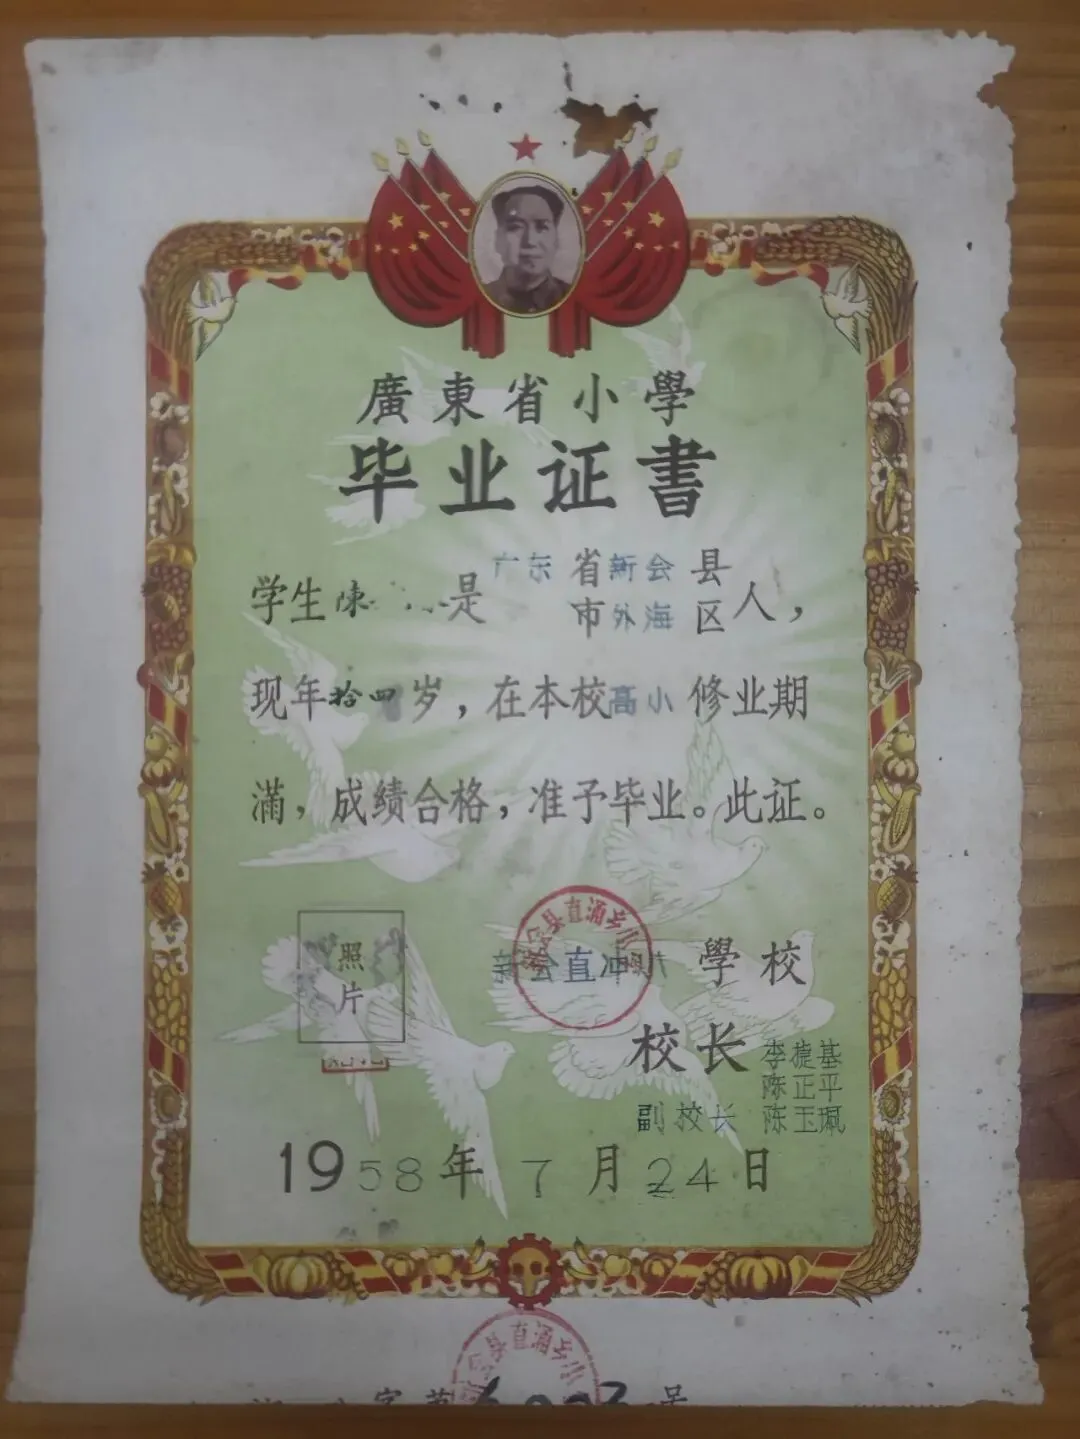 廣東省小學
毕业证書
学生陳 是广东省新会县
市外海区人，
现年拾四岁，在本校高小修业期
满，成绩合格，准予毕业。此证。
照片
新会直冲 學校
校长 李揵基
陈正平
副校长 陈玉珮
1958年7月24日